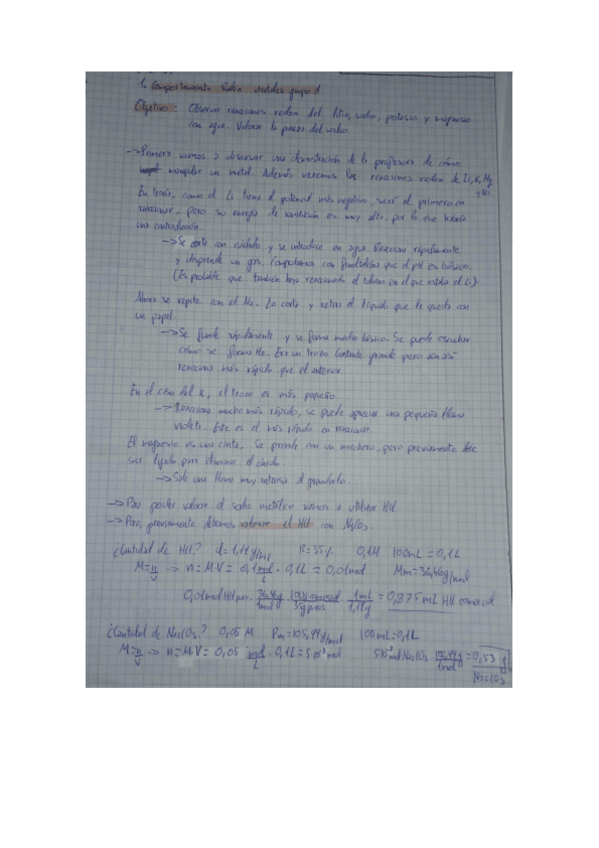 1. Comportamiento Redox Metales grupo 1
Objetivo: Observar reacciones redox del litio, sodio, potasio y magnesio
con agua. Valorar la pureza del sodio.
→ Primero vamos a observar una demostración de la profesora de cómo
manipular un metal. Además veremos las reacciones redox de Li, K, Mg
y Na.
En teoría, como el Li tiene el potencial más negativo, será el primero en
reaccionar, pero su energía de ionización es muy alta, por lo que habría
una contradicción.
→ Se corta con cuidado y se introduce en agua. Reacciona rápidamente
y desprende un gas. Comprobamos con fenolftaleína que el pH es básico.
(Es probable que también haya reaccionado el tolueno en el que estaba el Li)
Ahora se repite con el Na. Lo corta y retira el líquido que le queda con
un papel.
→ Se funde rápidamente y se forma medio básico. Se puede escuchar
cómo se forma H₂. Era un trozo bastante grande pero aún así
reacciona más rápido que el anterior.
En el caso del K, el trozo es más pequeño.
→ Reacciona mucho más rápido, se puede apreciar una pequeña llama
violeta. Este es el más rápido en reaccionar.
El magnesio es una cinta. Se prende con un mechero, pero previamente debe
ser lijado para eliminar el óxido.
→ Sale una llama muy intensa al prenderlo.
→ Para poder valorar el sodio metálico vamos a utilizar HCl
→ Pero, previamente debemos valorar el HCl con Na₂CO₃.
¿Cantidad de HCl? d=1,14g/mL R=35% 0,1M 100mL=0,1L
M=n/V → n=M·V= 0,1 mol/L · 0,1L = 0,01mol Mm=36,46g/mol
0,01mol HCl puro · 36,46g/1mol · 100g comercial/35g puros · 1mL/1,19g = 0,875 mL HCl comercial
¿Cantidad de Na₂CO₃? 0,05 M Pm=105,99g/mol 100mL=0,1L
M=n/V → n=M·V= 0,05 mol/L · 0,1L = 5·10⁻³ mol 5·10⁻³ mol Na₂CO₃ · 105,99g/1mol = 0,53 g
Na₂CO₃